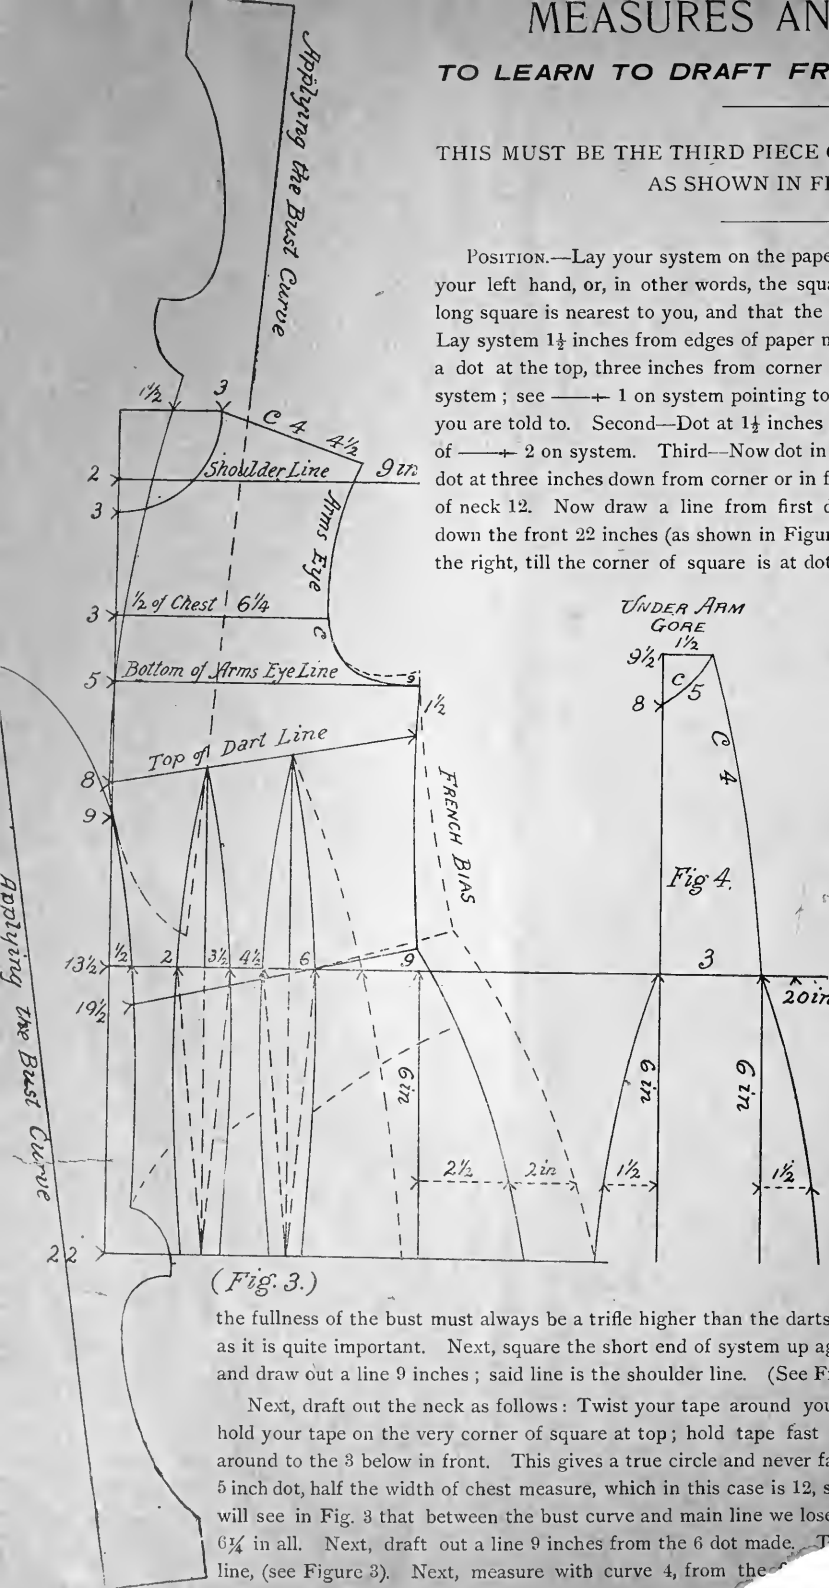 MEASURES AN
TO LEARN TO DRAFT FR
THIS MUST BE THE THIRD PIECE
AS SHOWN IN FI
POSITION.—Lay your system on the pape
your left hand, or, in other words, the squa
long square is nearest to you, and that the
Lay system 1½ inches from edges of paper
a dot at the top, three inches from corner
system ; see ——+ 1 on system pointing to
you are told to. Second—Dot at 1½ inches
of ——+ 2 on system. Third—Now dot in
dot at three inches down from corner or in f
of neck 12. Now draw a line from first
down the front 22 inches (as shown in Figur
the right, till the corner of square is at dot
Applying the Bust Curve
1½ 3
C 4 4½
2 Shoulder Line 9 in
3
Arms Eye
3 ½ of Chest 6¼
C
5 Bottom of Arms Eye Line 9
1½
Top of Dart Line
8
9
FRENCH BIAS
13½ ½ 2 3½ 4½ 6 9
19½
6 in
2½ 2 in
22
(Fig. 3.)
Applying the Bust Curve
UNDER ARM
GORE
9½ 1½
8 C 5
C 4
Fig 4.
3
20in
6 in 6 in
1½ 1½
the fullness of the bust must always be a trifle higher than the darts
as it is quite important. Next, square the short end of system up ag
and draw out a line 9 inches ; said line is the shoulder line. (See F
Next, draft out the neck as follows : Twist your tape around you
hold your tape on the very corner of square at top ; hold tape fast
around to the 3 below in front. This gives a true circle and never fa
5 inch dot, half the width of chest measure, which in this case is 12, s
will see in Fig. 3 that between the bust curve and main line we lose
6¼ in all. Next, draft out a line 9 inches from the 6 dot made. T
line, (see Figure 3). Next, measure with curve 4, from the